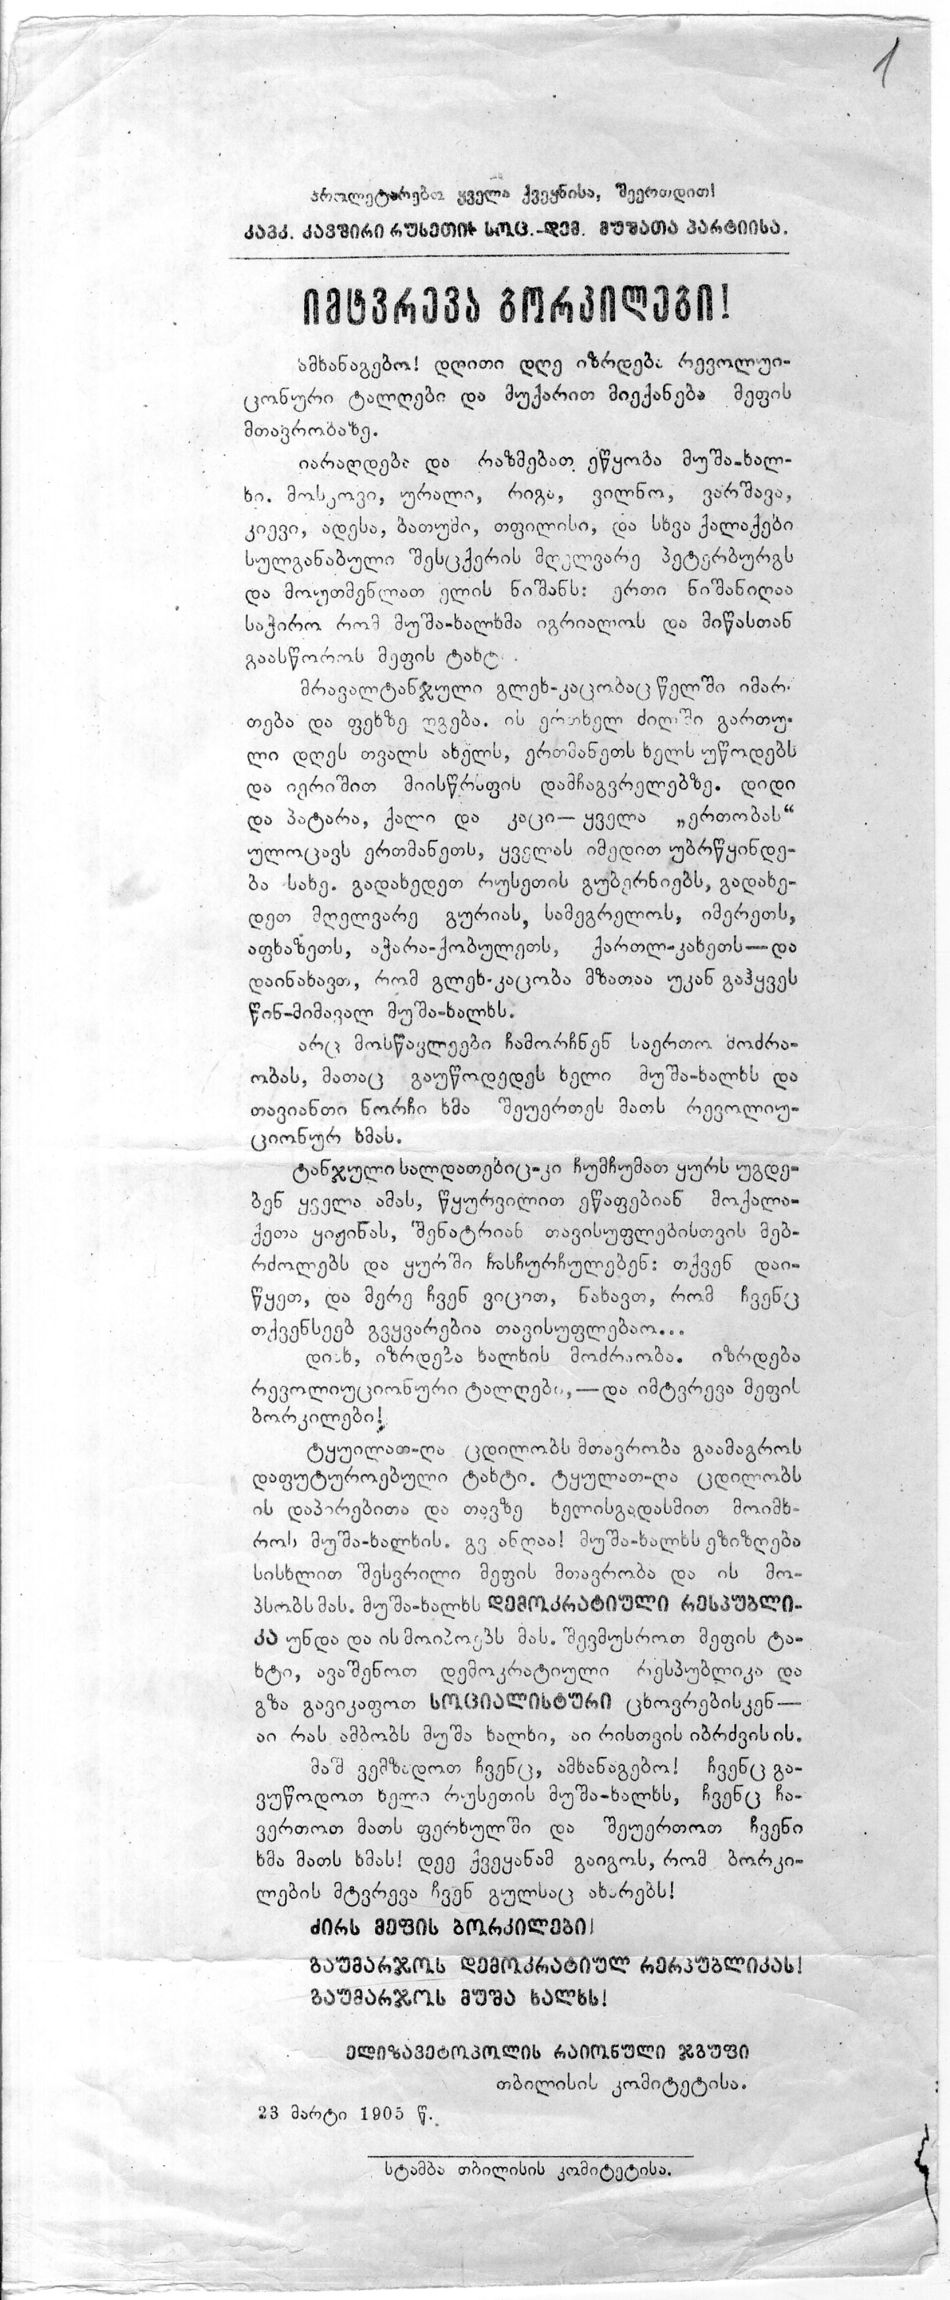 1
პროლეტარებო ყველა ქვეყნისა, შეერთდით!
კავკ. კავშირი რუსეთის სოც.-დემ. მუშათა პარტიისა.
იმტვრევა ბორკილები!
ამხანაგებო! დღითი დღე იზრდება რევოლუი-
ციონური ტალღები და მუქარით მიექანება მეფის
მთავრობაზე.
იარაღდება და რაზმებათ ეწყობა მუშა-ხალ-
ხი. მოსკოვი, ურალი, რიგა, ვილნო, ვარშავა,
კიევი, ადესა, ბათუმი, თფილისი, და სხვა ქალაქები
სულგანაბული შესცქერის მღელვარე პეტერბურგს
და მოუთმენლათ ელის ნიშანს: ერთი ნიშანიღაა
საჭირო რომ მუშა-ხალხმა იგრიალოს და მიწასთან
გაასწოროს მეფის ტახტ
მრავალტანჯული გლეხ-კაცობაც წელში იმარ-
თება და ფეხზე დგება. ის ერთხელ ძილში გართუ-
ლი დღეს თვალს ახელს, ერთმანეთს ხელს უწოდებს
და იერიშით მიისწრაფის დამჩაგვრელებზე. დიდი
და პატარა, ქალი და კაცი—ყველა „ერთობას“
ულოცავს ერთმანეთს, ყველას იმედით უბრწყინდე-
ბა სახე. გადახედეთ რუსეთის გუბერნიებს, გადახე-
დეთ მღელვარე გურიას, სამეგრელოს, იმერეთს,
აფხაზეთს, აჭარა-ქობულეთს, ქართლ-კახეთს—და
დაინახავთ, რომ გლეხ-კაცობა მზათაა უკან გაჰყვეს
წინ-მიმავალ მუშა-ხალხს.
არც მოსწავლეები ჩამორჩნენ საერთო მოძრა-
ობას, მათაც გაუწოდედეს ხელი მუშა-ხალხს და
თავიანთი ნორჩი ხმა შეუერთეს მათს რევოლიუ-
ციონურ ხმას.
ტანჯული სალდათებიც-კი ჩუმჩუმათ ყურს უგდე-
ბენ ყველა ამას, წყურვილით ეწაფებიან მოქალა-
ქეთა ყიჟინას, შენატრიან თავისუფლებისთვის მებ-
რძოლებს და ყურში ჩასჩურჩულებენ: თქვენ დაი-
წყეთ, და მერე ჩვენ ვიცით, ნახავთ, რომ ჩვენც
თქვენსეებ გვყვარებია თავისუფლებაო...
დიახ, იზრდება ხალხის მოძრაობა. იზრდება
რევოლიუციონური ტალღები,—და იმტვრევა მეფის
ბორკილები!
ტყუილათ-ღა ცდილობს მთავრობა გაამაგროს
დაფუტუროებული ტახტი. ტყულათ-ღა ცდილობს
ის დაპირებითა და თავზე ხელისგადასმით მოიმხ-
როს მუშა-ხალხის. გვიანღაა! მუშა-ხალხს ეზიზღება
სისხლით შესვრილი მეფის მთავრობა და ის მო-
პსობს მას. მუშა-ხალხს დემოკრატიული რესპუბლი-
კა უნდა და ის მოიპოვებს მას. შევმუსროთ მეფის ტა-
ხტი, ავაშენოთ დემოკრატიული რესპუბლიკა და
გზა გავიკაფოთ სოციალისტური ცხოვრებისკენ—
აი რას ამბობს მუშა ხალხი, აი რისთვის იბრძვის ის.
მაშ ვემზადოთ ჩვენც, ამხანაგებო! ჩვენც გა-
ვუწოდოთ ხელი რუსეთის მუშა-ხალხს, ჩვენც ჩა-
ვერთოთ მათს ფერხულში და შეუერთოთ ჩვენი
ხმა მათს ხმას! დეე ქვეყანამ გაიგოს, რომ ბორკი-
ლების მტვრევა ჩვენ გულსაც ახარებს!
ძირს მეფის ბორკილები!
გაუმარჯოს დემოკრატიულ რერპუბლიკას!
გაუმარჯოს მუშა ხალხს!
ელიზავეტოპოლის რაიონული ჯგუფი
თბილისის კომიტეტისა.
23 მარტი 1905 წ.
სტამბა თბილისის კომიტეტისა.